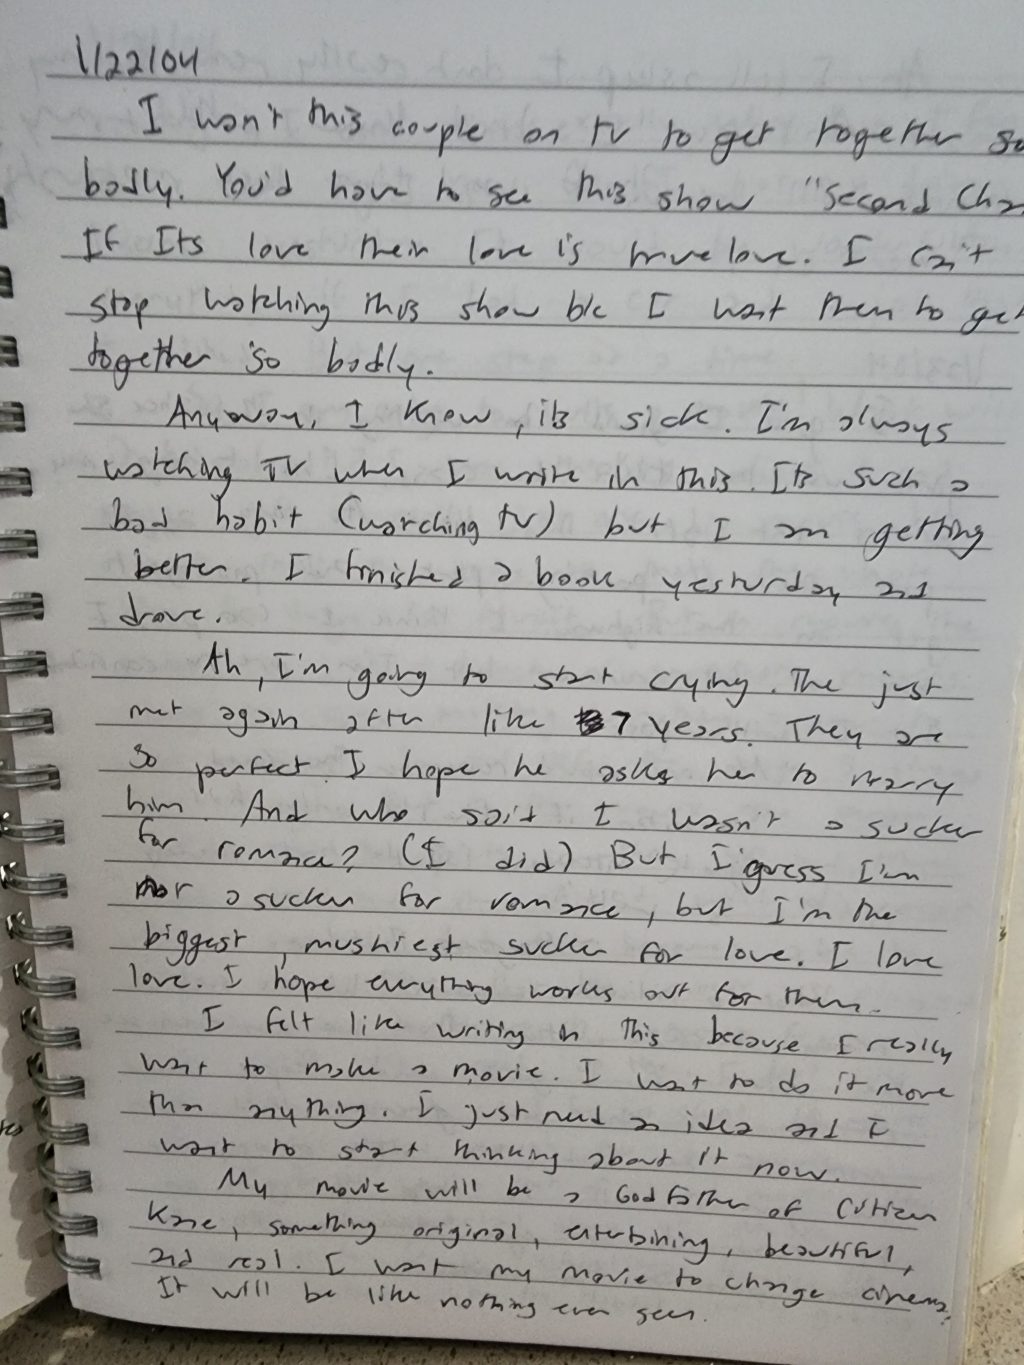 1/22/04
I won't this couple on tv to get together so
badly. You'd have to see this show "Second Cha
If Its love their love is true love. I can't
stop watching this show b/c I want them to get
together so badly.
Anyway, I know, its sick. I'm always
watching TV when I write in this. Its such a
bad habit (watching tv) but I am getting
better. I finished a book yesturday and
drove.
Ah, I'm going to start crying. The just
met again after like 7 years. They are
so perfect. I hope he asks her to marry
him. And who said I wasn't a sucker
for romance? (I did) But I guess I'm
not a sucker for romance, but I'm the
biggest, mushiest sucker for love. I love
love. I hope everything works out for them.
I felt like writing in this because I really
want to make a movie. I want to do it more
than anything. I just need an idea and I
want to start thinking about it now.
My movie will be a Godfather of Citizen
Kane, something original, entertaining, beautiful,
and real. I want my movie to change cinema.
It will be like nothing ever seen.